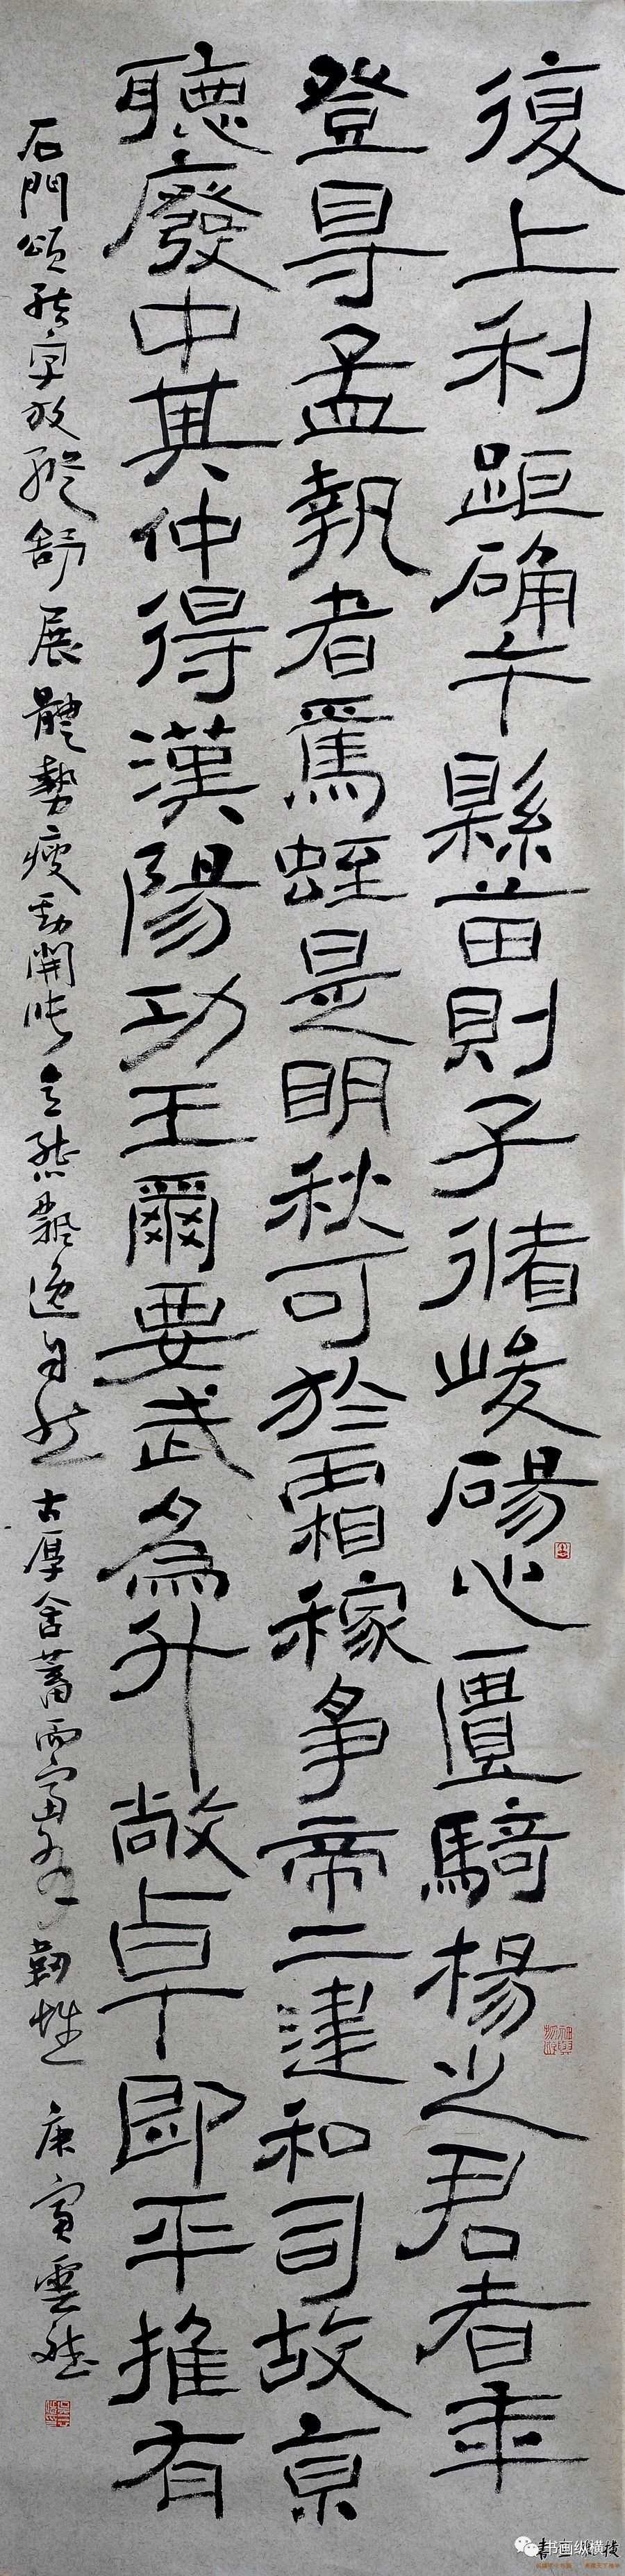 復上利距确千縣苗則子㣥峻碭心匱騎楊之君者年
登㝵孟執者篤蛭是明秋可於霜稼爭帝二建和司故京
聽廢中其仲得漢陽功王爾要武為升敞卓即平推有
石門頌結字放縱舒展體勢瘦勁開張意態飄逸自然古厚含蓄而富有韌性 庚寅雲
书画纵横